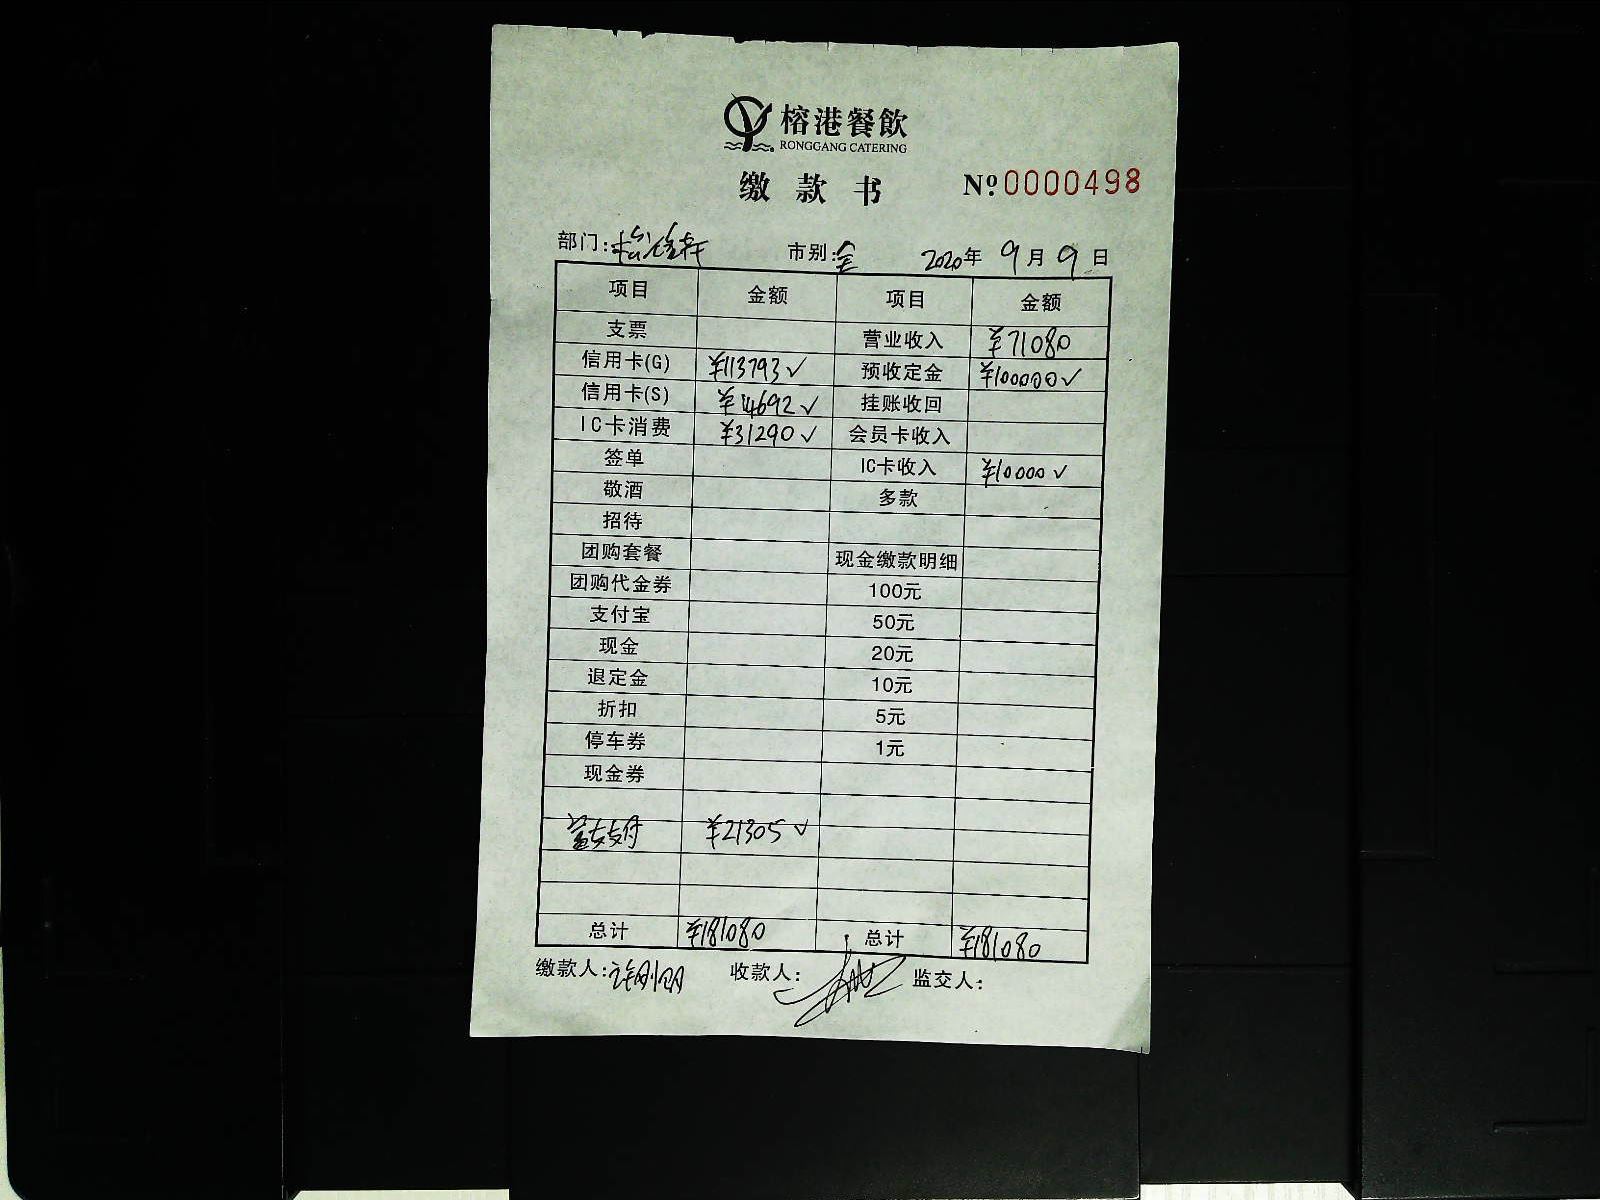 榕港餐飲
RONGGANG CATERING
缴款书 №0000498
部门: 市别:全 2020年 9月 9日
项目 金额 项目 金额
支票 营业收入 ¥71080
信用卡(G) ¥113793✓ 预收定金 ¥100000✓
信用卡(S) ¥14692✓ 挂账收回
IC卡消费 ¥31290✓ 会员卡收入
签单 IC卡收入 ¥10000✓
敬酒 多款
招待
团购套餐 现金缴款明细
团购代金券 100元
支付宝 50元
现金 20元
退定金 10元
折扣 5元
停车券 1元
现金券
富友支付 ¥21305✓
总计 ¥181080 总计 ¥181080
缴款人: 收款人: 监交人: